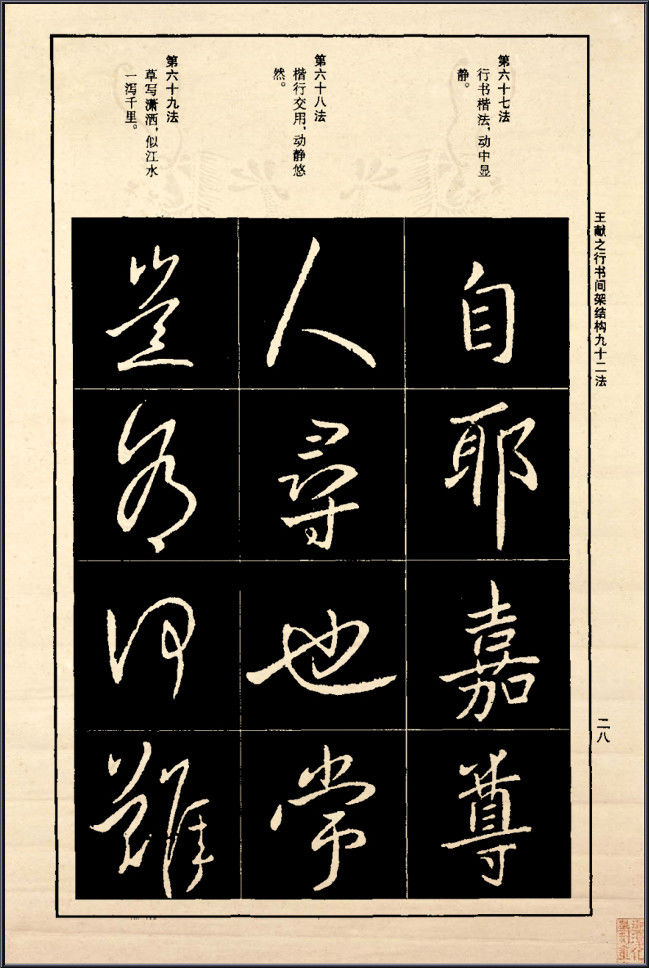 王献之行书间架结构九十二法
二八
第六十七法
行书楷法,动中显
静。
自
耶
嘉
尊
第六十八法
楷行交用,动静悠
然。
人
尋
也
常
第六十九法
草写潇洒,似江水
一泻千里。
難